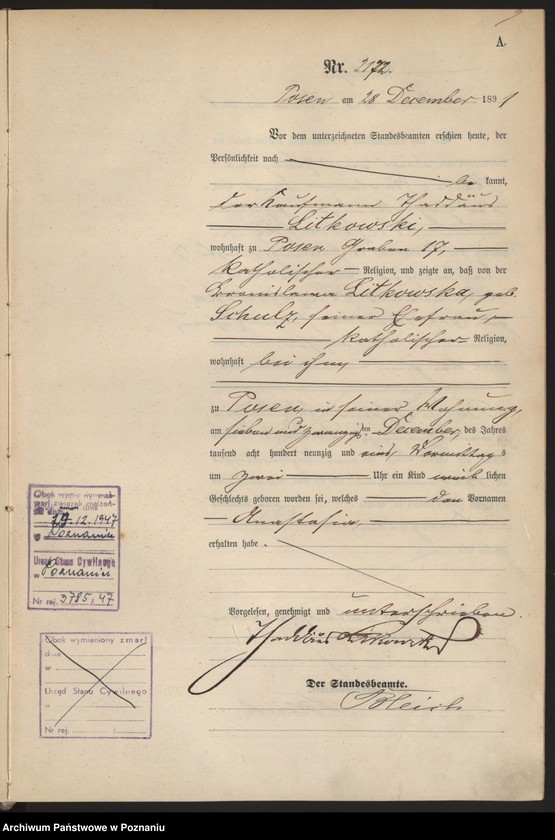 A.
Nr. 2172.
Posen am 28 December 1891
Vor dem unterzeichneten Standesbeamten erschien heute, der
Persönlichkeit nach
be kannt,
der Kaufmann Thaddäus
Litkowski,
wohnhaft zu Posen Graben 17,
katholischer Religion, und zeigte an, daß von der
Bronislawa Litkowska, geb.
Schulz, seiner Ehefrau,
katholischer Religion,
wohnhaft bei ihm
zu Posen, in seiner Wohnung,
am sieben und zwanzigsten December, des Jahres
tausend acht hundert neunzig und eins, Vormittags
um zwei Uhr ein Kind weiblichen
Geschlechts geboren worden sei, welches den Vornamen
Anastasia,
erhalten habe.
Vorgelesen, genehmigt und unterschrieben.
Thaddäus Litkowski
Der Standesbeamte.
Obok wymien
warł związek małżeń-
29.12.1947
w Poznaniu
Urząd Stanu Cywilnego
w Poznaniu
Nr rej. 3785/47
Obok wymieniony zmarł
dnia
w
Urząd Stanu Cywilnego
w
Nr rej. /
Archiwum Państwowe w Poznaniu